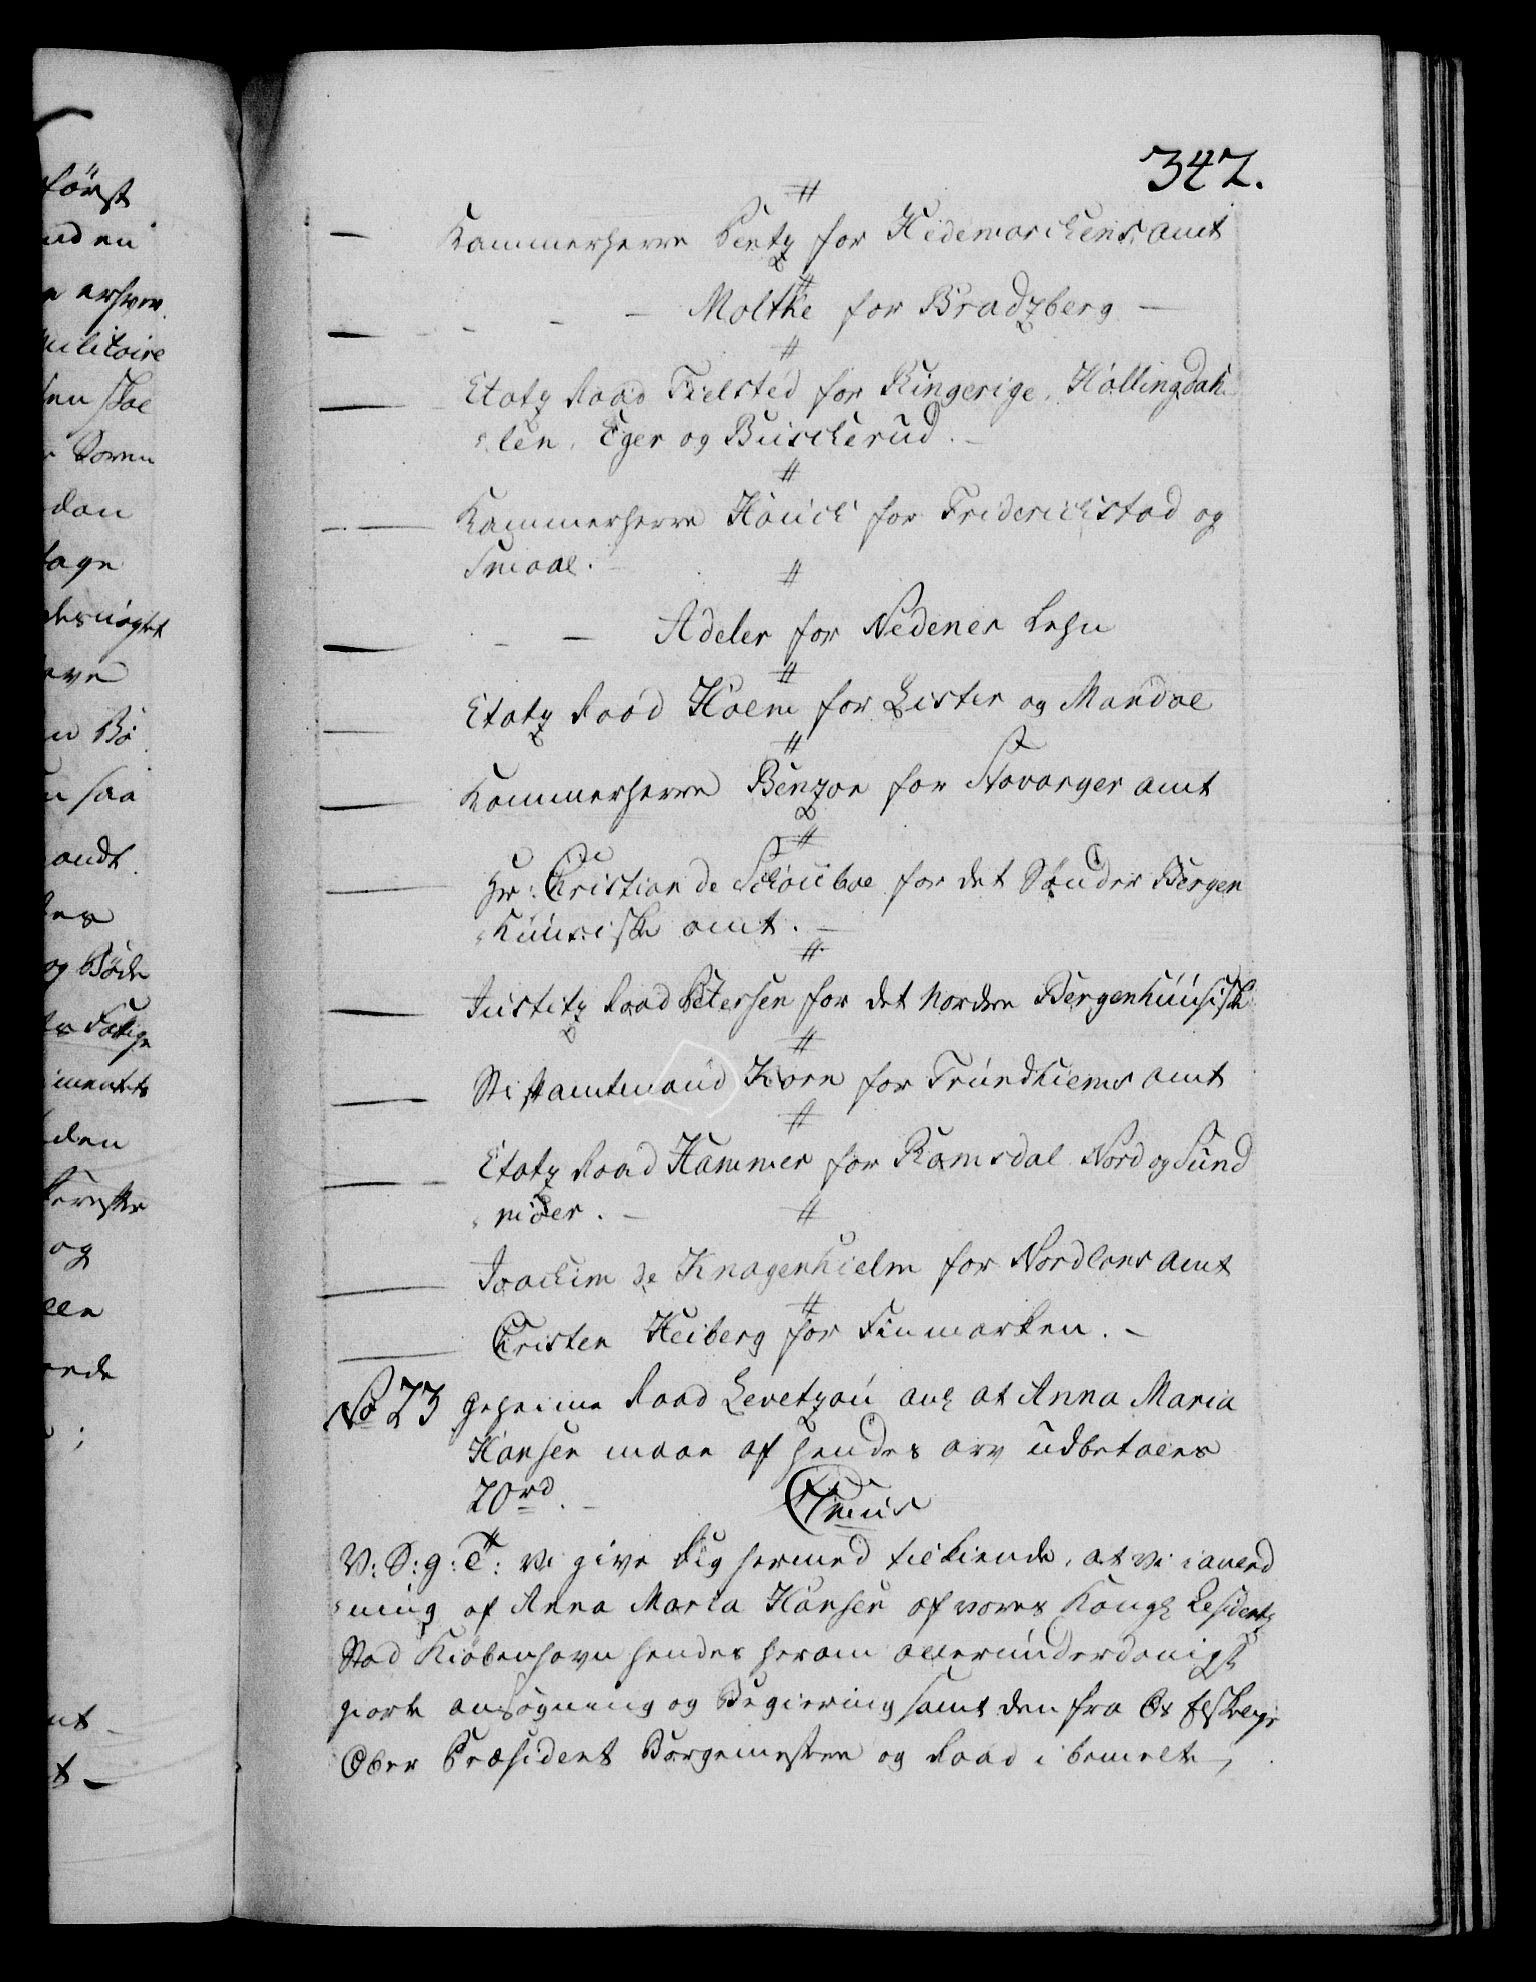 342.
Kammerherre Pentz for Hedemarchens amt
— — — Moltke for Bradzberg —
Etatz Raad Fielsted for Ringerige, Hallingdah
„len, Eger og Buscherud. —
Kammerherre Hauch for Friderichstad og
Smaal. —
— — Adeler for Nedenes Lehn
Etatz Raad Holm for Lister og Mandal
Kammerherre Benzon for Stavanger amt
Hr: Christian de Schouboe for det Sønder Bergen
„huusiske amt. —
Justitz Raad Petersen for det Nordre Bergenhuusiske
Stiftamtmand for Trundhiems amt
Etatz Raad Hammer for Romsdal Nord og Sund
„møer. —
Joachim de Knagenhielm for Nordlans amt
Christen Heiberg for Finmarken. —
No 23 Geheime Raad Levetzau anl at Anna Maria
Hansen maae af hendes arv udbetales
70 rd. —
V: S: g: T: Vi give Dig hermed tilkiende, at Vi i anled
„ning af Anna Maria Hansen af vores Kongl Residentz
Stad Kiøbenhavn hendes herom allerunderdanigst
giorte ansøgning og Begiering samt den fra Os Elskelige
Ober Præsident Borgemestere og Raad i bemelte
först
militaire
skal
dan
tage
saa
og Bøde
den
og